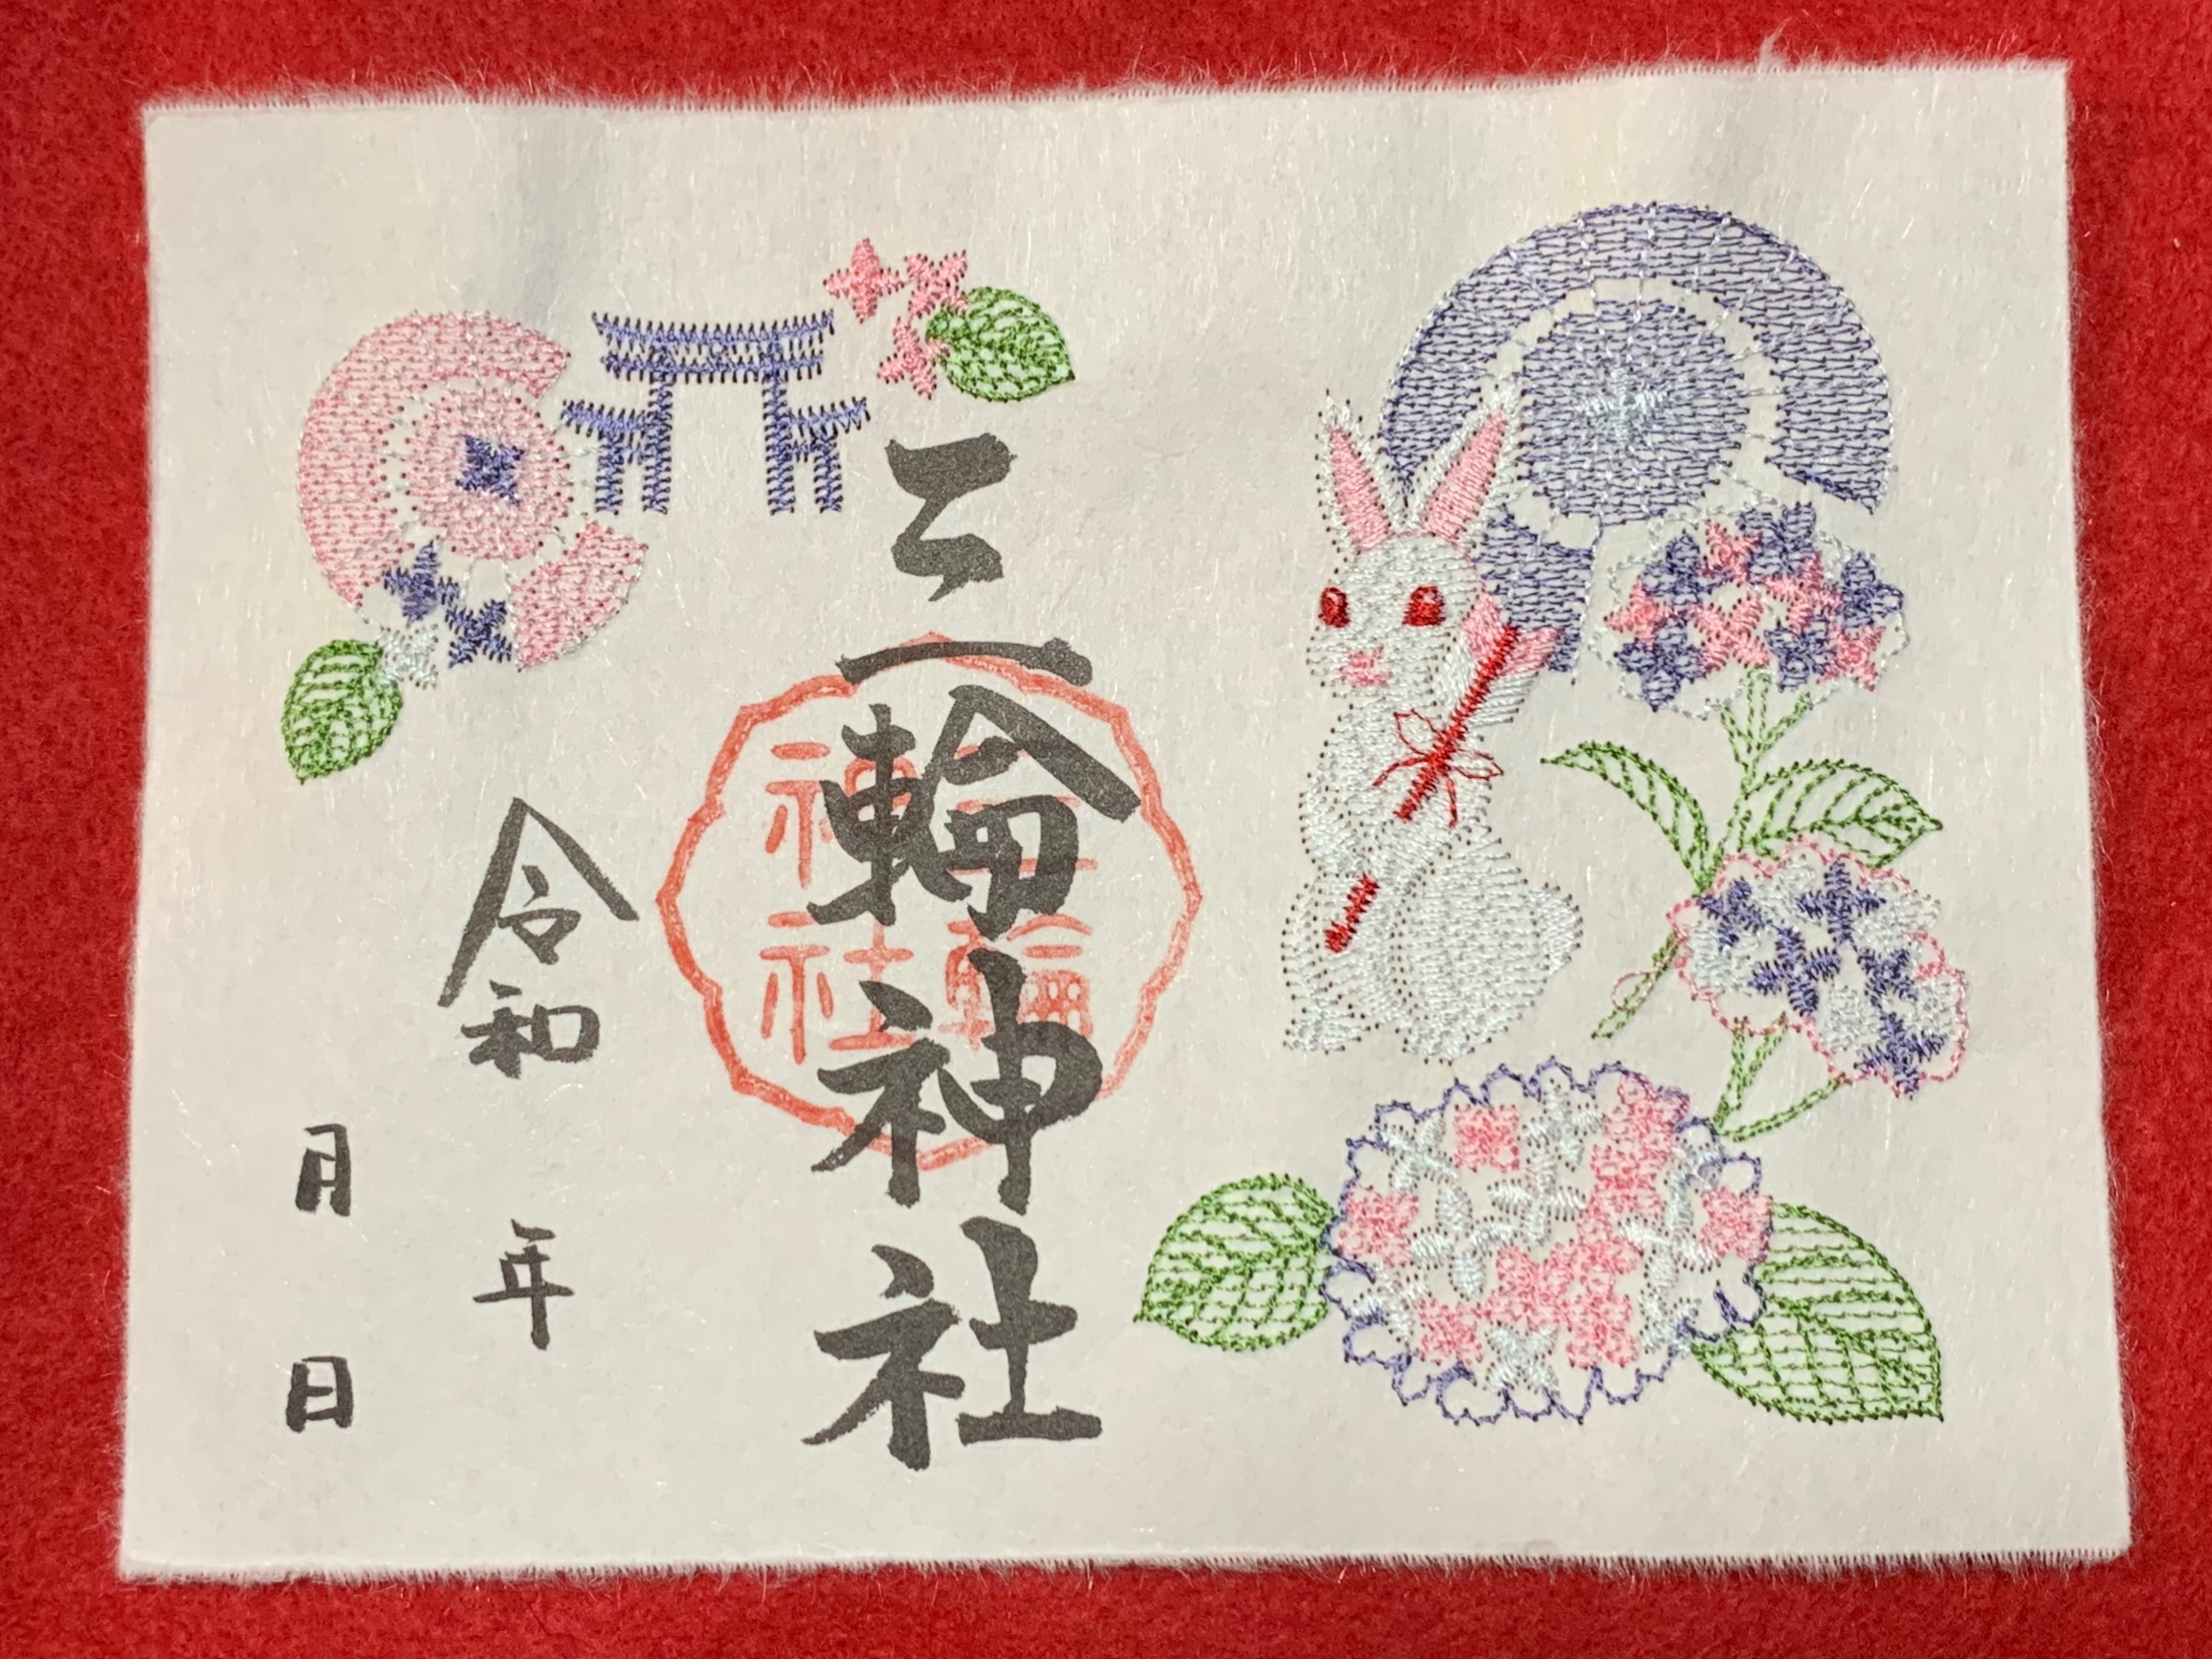 三輪神社
三輪
神社
令和 年
月 日